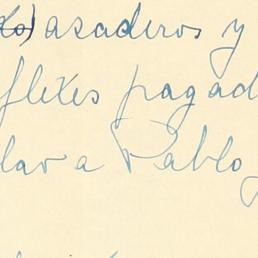 asaderos y
fletes pagad
lar a Pablo